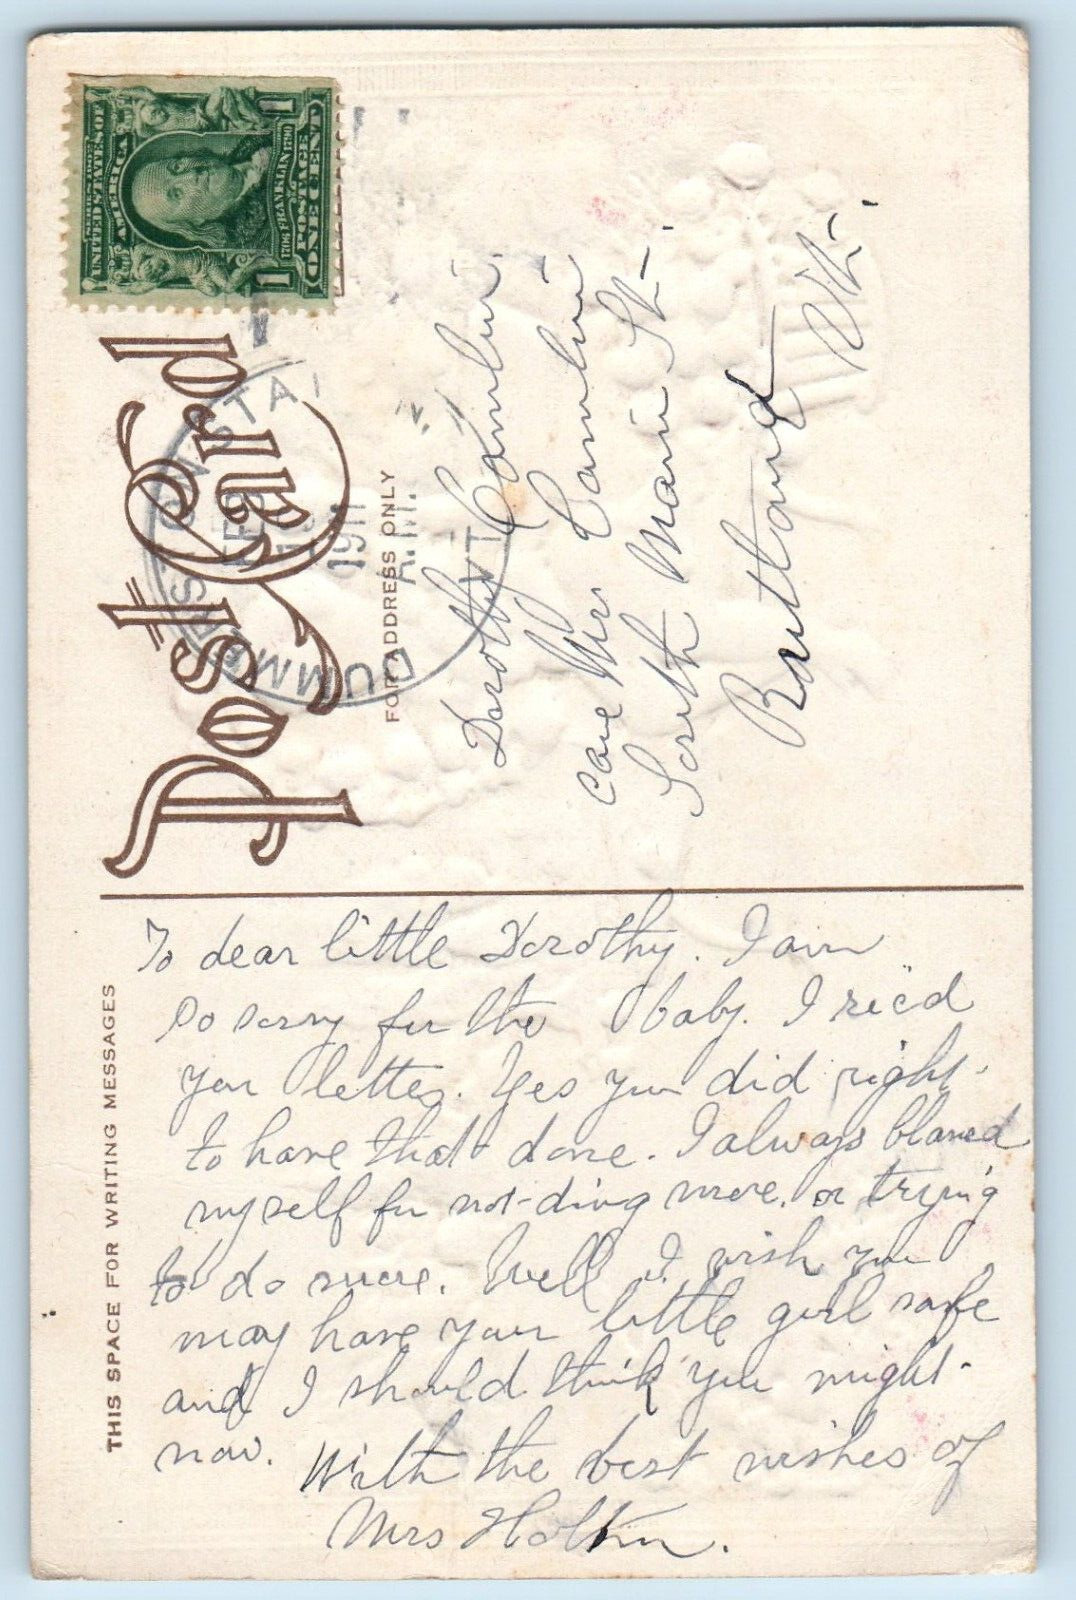 SERIES OF 1902
UNITED STATES OF
AMERICA
1706 FRANKLIN 1790
POSTAGE
ONE CENT
1 1
Post Card
FOR ADDRESS ONLY
DUMMERSTON STA
FEB
1911
A.M.
VT
Dorothy
care Mr.
South Main St.
Rutland Vt.
THIS SPACE FOR WRITING MESSAGES
To dear little Dorothy. I am
so sorry for the baby. I rec'd
your letter. Yes you did right
to have that done. I always blamed
myself for not doing more. or trying
to do more. Well I wish you
may have your little girl safe
and I should think you might
now. With the best wishes of
Mrs